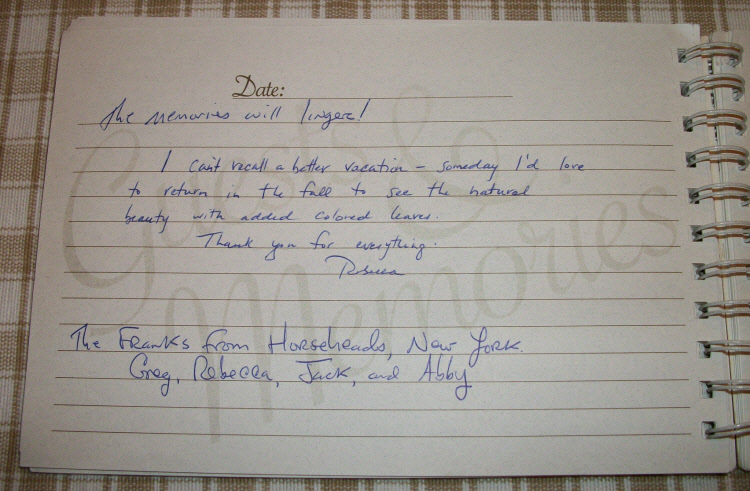 Date:
The memories will linger!
I can't recall a better vacation - someday I'd love
to return in the fall to see the natural
beauty with added colored leaves.
Thank you for everything.
Rebecca
The Franks from Horseheads, New York.
Greg, Rebecca, Jack, and Abby
Guests &
Memories